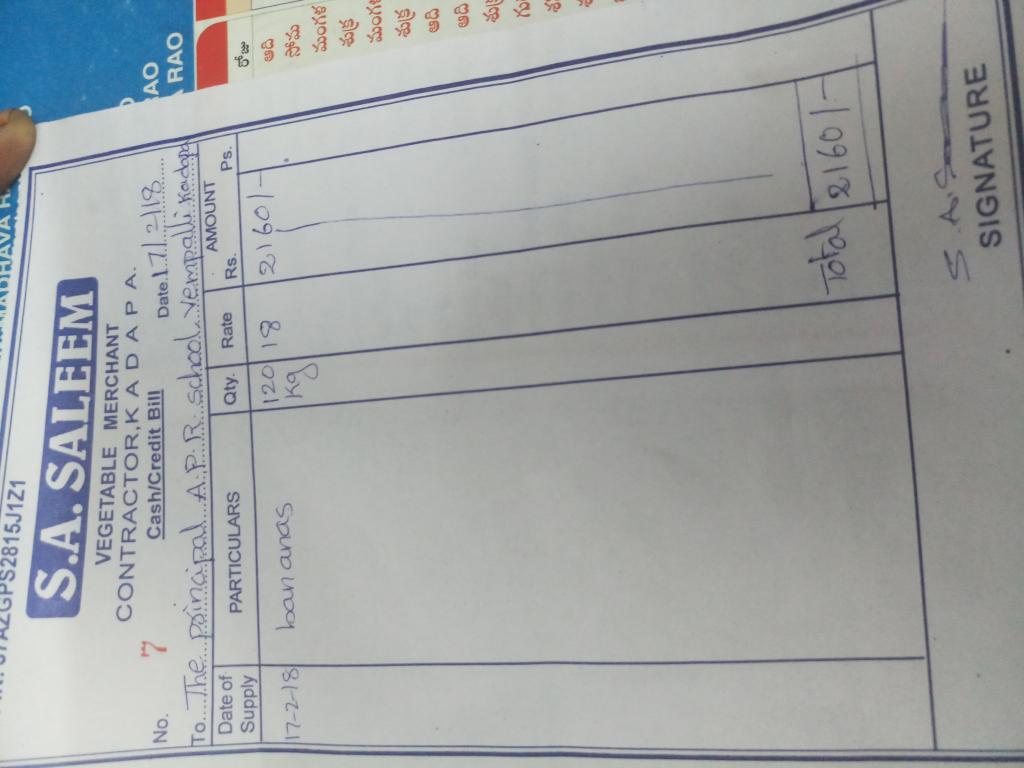 AZGPS2815J1Z1
S.A. SALEEM
VEGETABLE MERCHANT
CONTRACTOR, K A D A P A.
No. 7 Cash/Credit Bill Date 17/2/18
To The principal A.P.R. school. Vempalli Kadapa
Date of Supply PARTICULARS Qty. Rate AMOUNT Rs. Ps.
17-2-18 bananas 120 kg 18 2160/-
Total 2160/-
S.A.S
SIGNATURE
RAO
RAO
రోజు
ఆది
సోమ
మంగళ